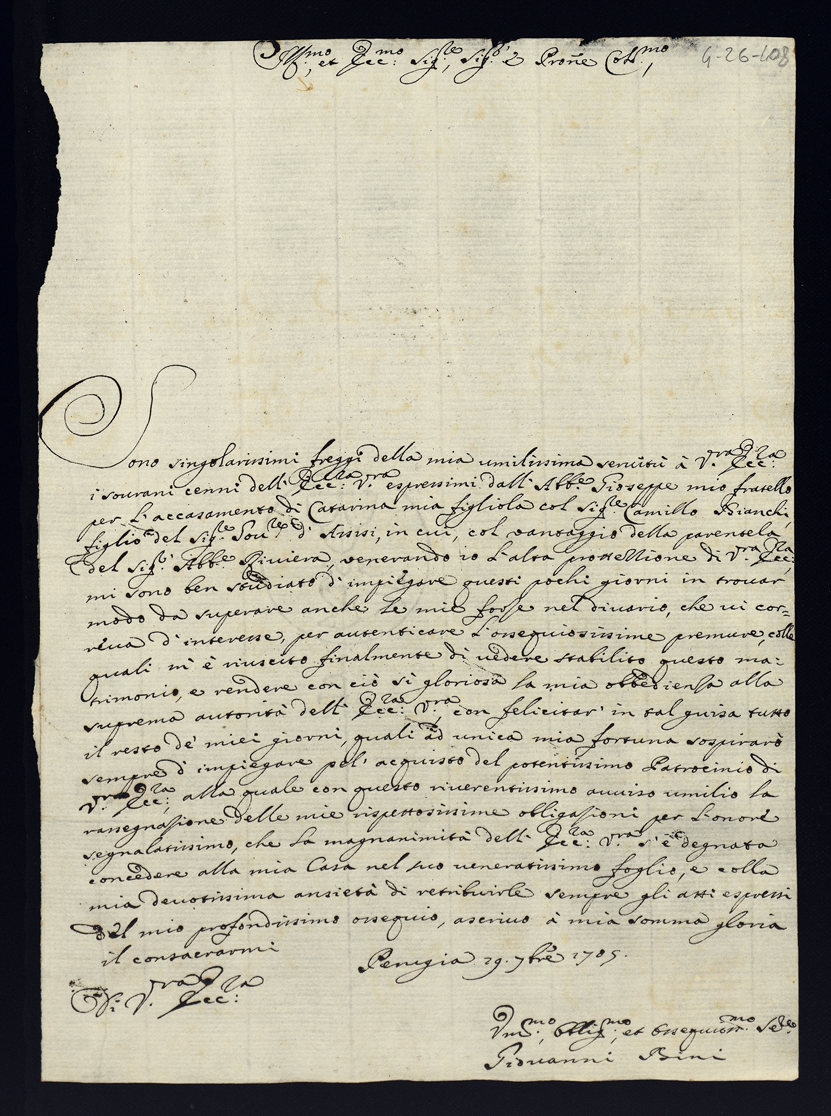 Ill.mo, et Ecc.mo Sig.re, Sig.r e Prone Col.mo,
G-26-408
Sono singolarissimi freggi della mia umilissima servitù à V.ra Ecc.za
i sourani cenni dell' Ecc.lla V.ra espressimi dall' Abb.e Gioseppe mio fratello
per l'accasamento di Catarina mia figliola col Sig.re Camillo Bianchi,
figlio del Sig.re Gou.re d' Assisi, in cui, col vantaggio della parentela
del Sig.r Abb.e Riviera, venerando io l'alta protettione di V.ra Ecc.za,
mi sono ben studiato d' impiegare questi pochi giorni in trovar
modo da superare anche le mie forse nel divario, che vi cor=
reva d' interesse, per autenticare l'ossequiosissime premure, colle
quali m' è riuscito finalmente di vedere stabilito questo ma=
trimonio, e rendere con ciò sì gloriosa la mia obbediensa alla
suprema autorità dell' Ecc.za V.ra, con felicitar' in tal guisa tutto
il resto de' miei giorni, quali ad unica mia fortuna sospirarò
sempre d' impiegare pel' acquisto del potentissimo Patrocinio di
V.ra Ecc.za, alla quale con questo riverentissimo avviso umilio la
rassegnassione delle mie rispettosissime obligassioni per l'onore
segnalatissimo, che la magnanimità dell' Ecc.za V.ra s' è degnata
concedere alla mia Casa nel suo veneratissimo foglio, e colla
mia devotissima ansietà di retribuirle sempre gli atti espressi
del mio profondissimo ossequio, ascrivo à mia somma gloria
il consacrarmi
Perugia 29. 7bre 1705.
Di V.ra Ecc.za
Um.mo, Oblig.mo, et Ossequios.mo Se.re
Giovanni Bini